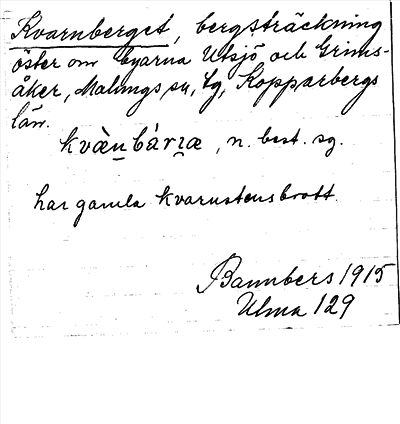 Kvarnberget, bergsträckning
öster om byarna Utsjö och Grims-
åker, Malungs sn, Lg, Kopparbergs
län.
kvȁn̲bári̲æ, n. best. sg.
har gamla kvarnstensbrott.
Bannbers 1915
Ulma 129